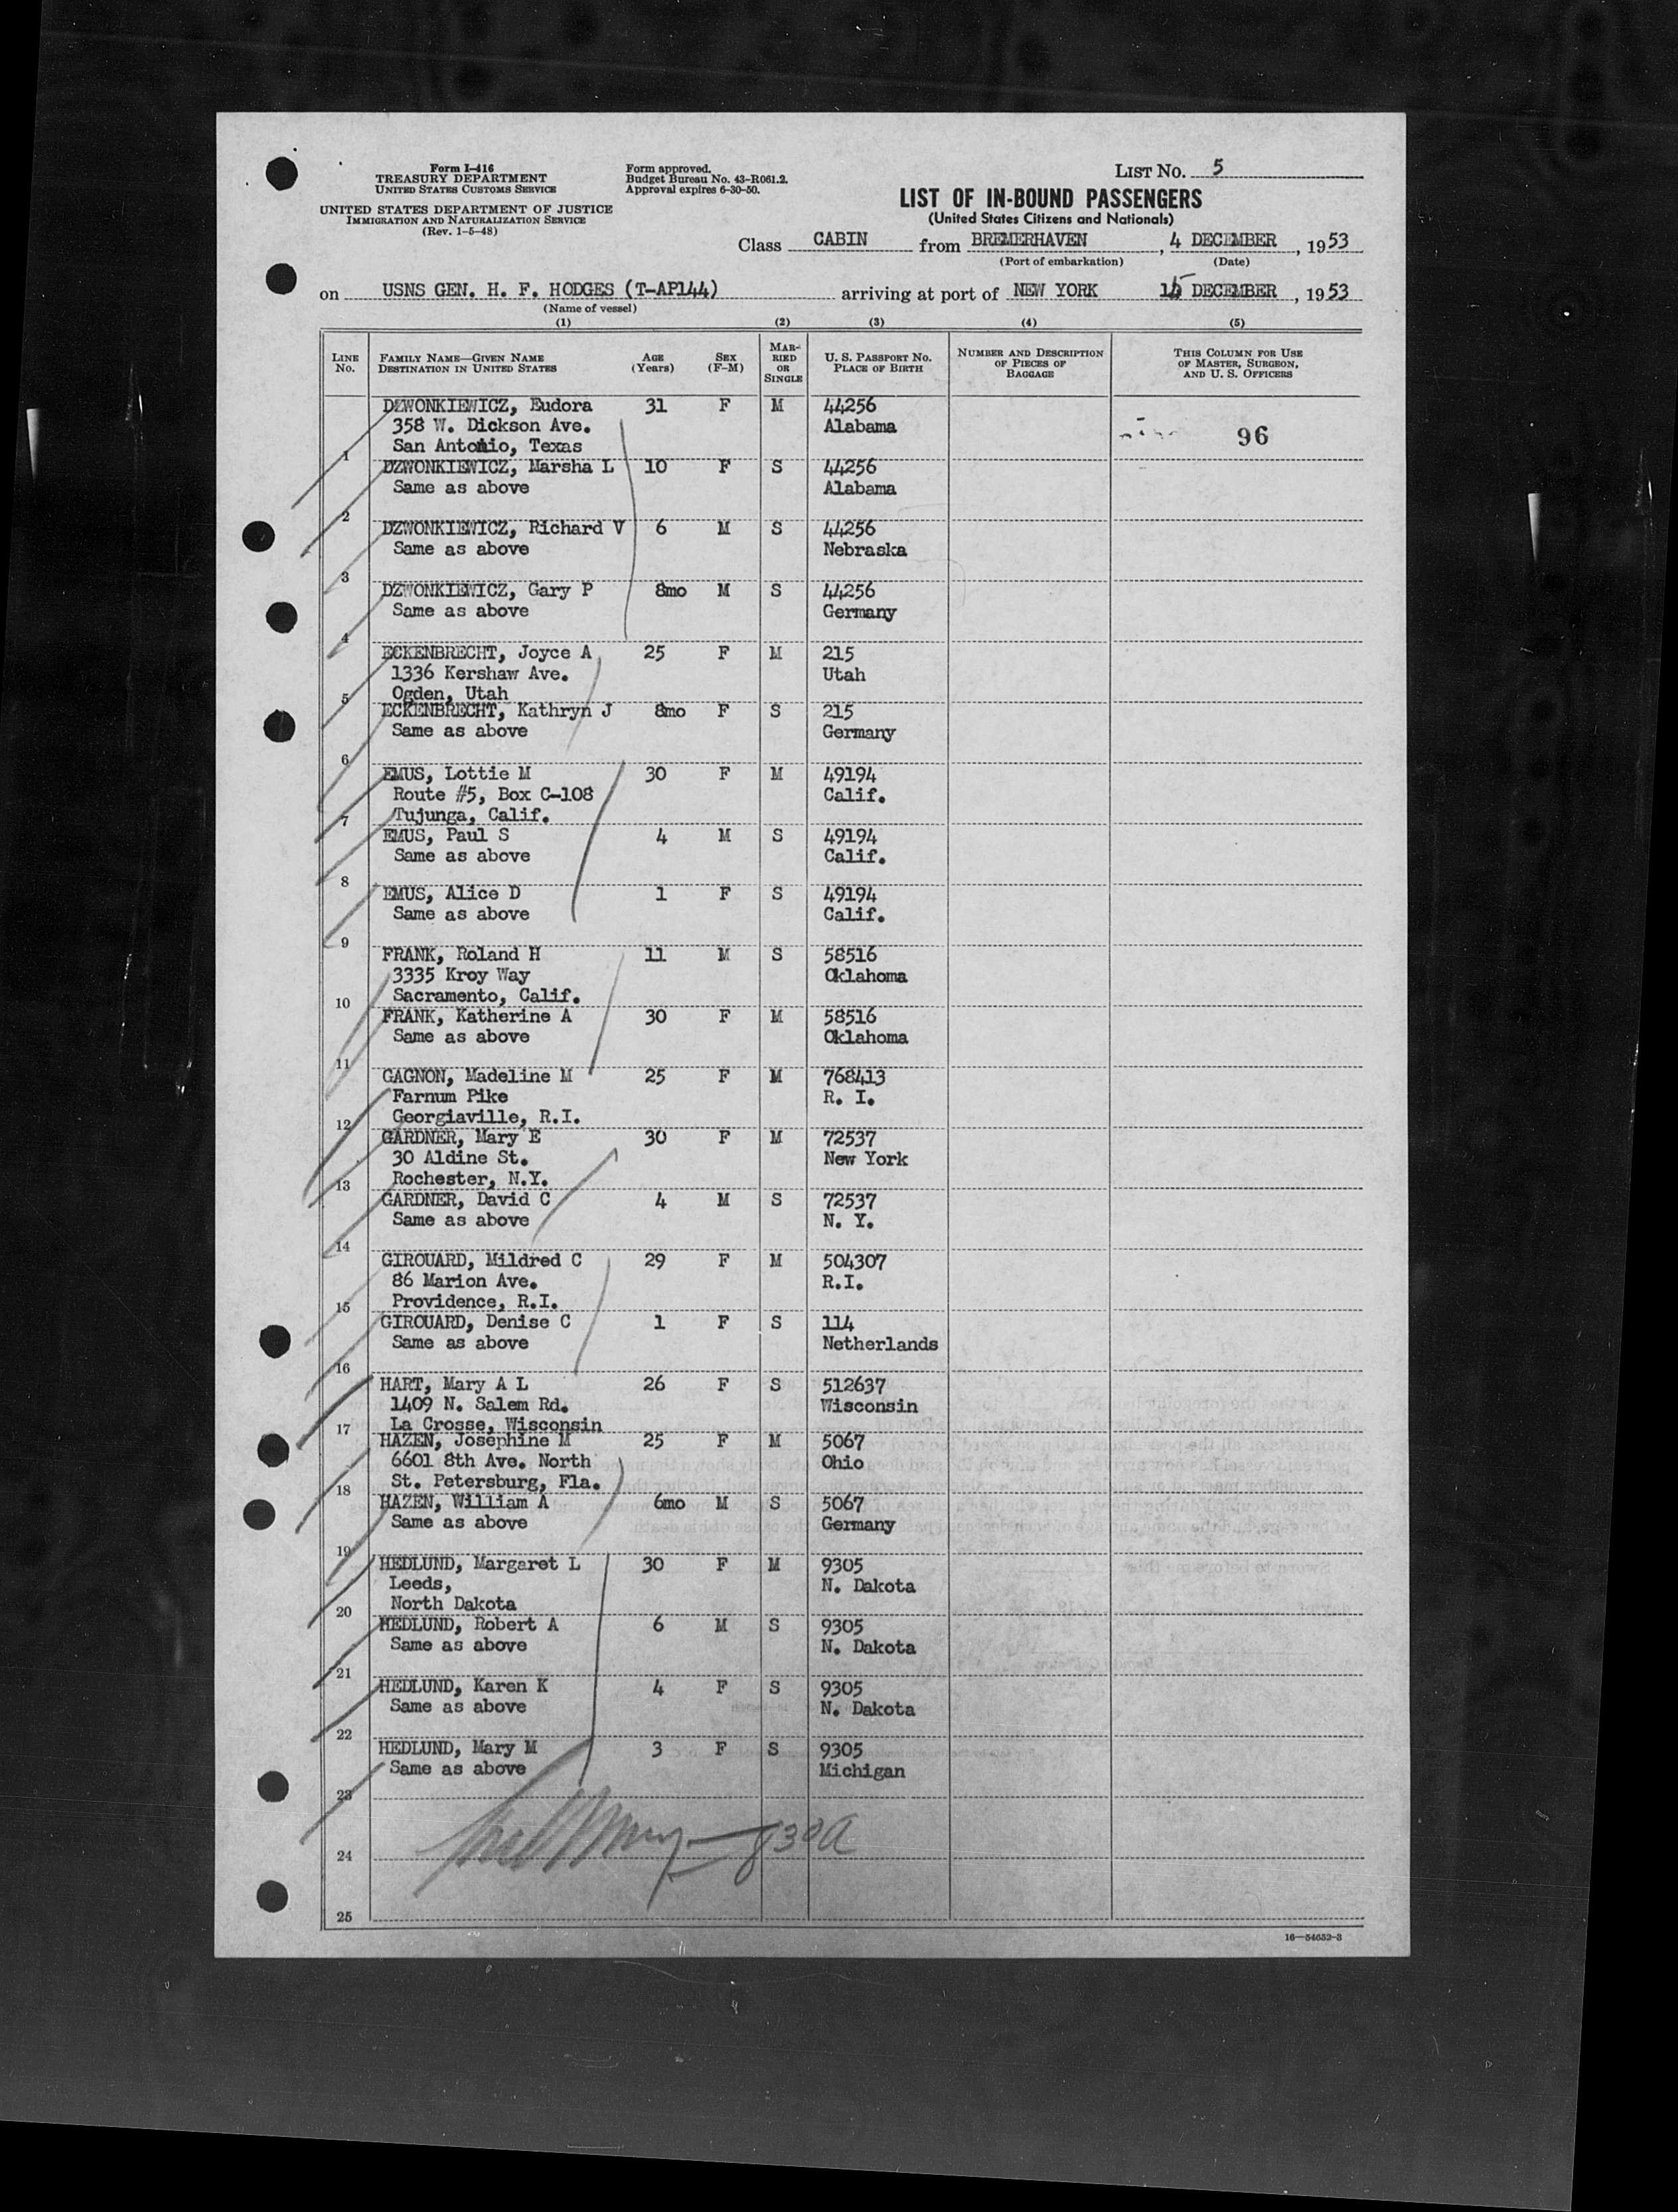 Form I-416
TREASURY DEPARTMENT
UNITED STATES CUSTOMS SERVICE
UNITED STATES DEPARTMENT OF JUSTICE
IMMIGRATION AND NATURALIZATION SERVICE
(Rev. 1-5-48)
Form approved.
Budget Bureau No. 43-R061.2.
Approval expires 6-30-50.
LIST NO. 5
LIST OF IN-BOUND PASSENGERS
(United States Citizens and Nationals)
Class CABIN from BREMERHAVEN, 4 DECEMBER, 1953
(Port of embarkation) (Date)
on USNS GEN. H. F. HODGES (T-AP144) arriving at port of NEW YORK 15 DECEMBER, 1953
(Name of vessel)
(1) (2) (3) (4) (5)
LINE NO. FAMILY NAME—GIVEN NAME DESTINATION IN UNITED STATES AGE (Years) SEX (F-M) MARRIED OR SINGLE U. S. PASSPORT NO. PLACE OF BIRTH NUMBER AND DESCRIPTION OF PIECES OF BAGGAGE THIS COLUMN FOR USE OF MASTER, SURGEON, AND U. S. OFFICERS
DZWONKIEWICZ, Eudora 31 F M 44256
358 W. Dickson Ave. Alabama 96
San Antonio, Texas
1
DZWONKIEWICZ, Marsha L 10 F S 44256
Same as above Alabama
2
DZWONKIEWICZ, Richard V 6 M S 44256
Same as above Nebraska
3
DZWONKIEWICZ, Gary P 8mo M S 44256
Same as above Germany
4
ECKENBRECHT, Joyce A 25 F M 215
1336 Kershaw Ave. Utah
5 Ogden, Utah
ECKENBRECHT, Kathryn J 8mo F S 215
Same as above Germany
6
EMUS, Lottie M 30 F M 49194
Route #5, Box C-108 Calif.
7 Tujunga, Calif.
EMUS, Paul S 4 M S 49194
Same as above Calif.
8
EMUS, Alice D 1 F S 49194
Same as above Calif.
9
FRANK, Roland H 11 M S 58516
3335 Kroy Way Oklahoma
10 Sacramento, Calif.
FRANK, Katherine A 30 F M 58516
Same as above Oklahoma
11
GAGNON, Madeline M 25 F M 768413
Farnum Pike R. I.
12 Georgiaville, R.I.
GARDNER, Mary E 30 F M 72537
30 Aldine St. New York
13 Rochester, N.Y.
GARDNER, David C 4 M S 72537
Same as above N. Y.
14
GIROUARD, Mildred C 29 F M 504307
86 Marion Ave. R.I.
15 Providence, R.I.
GIROUARD, Denise C 1 F S 114
Same as above Netherlands
16
HART, Mary A L 26 F S 512637
1409 N. Salem Rd. Wisconsin
17 La Crosse, Wisconsin
HAZEN, Josephine M 25 F M 5067
6601 8th Ave. North Ohio
18 St. Petersburg, Fla.
HAZEN, William A 6mo M S 5067
Same as above Germany
19
HEDLUND, Margaret L 30 F M 9305
Leeds, N. Dakota
20 North Dakota
HEDLUND, Robert A 6 M S 9305
Same as above N. Dakota
21
HEDLUND, Karen K 4 F S 9305
Same as above N. Dakota
22
HEDLUND, Mary M 3 F S 9305
Same as above Michigan
23
24 830A
25
16—54652-3